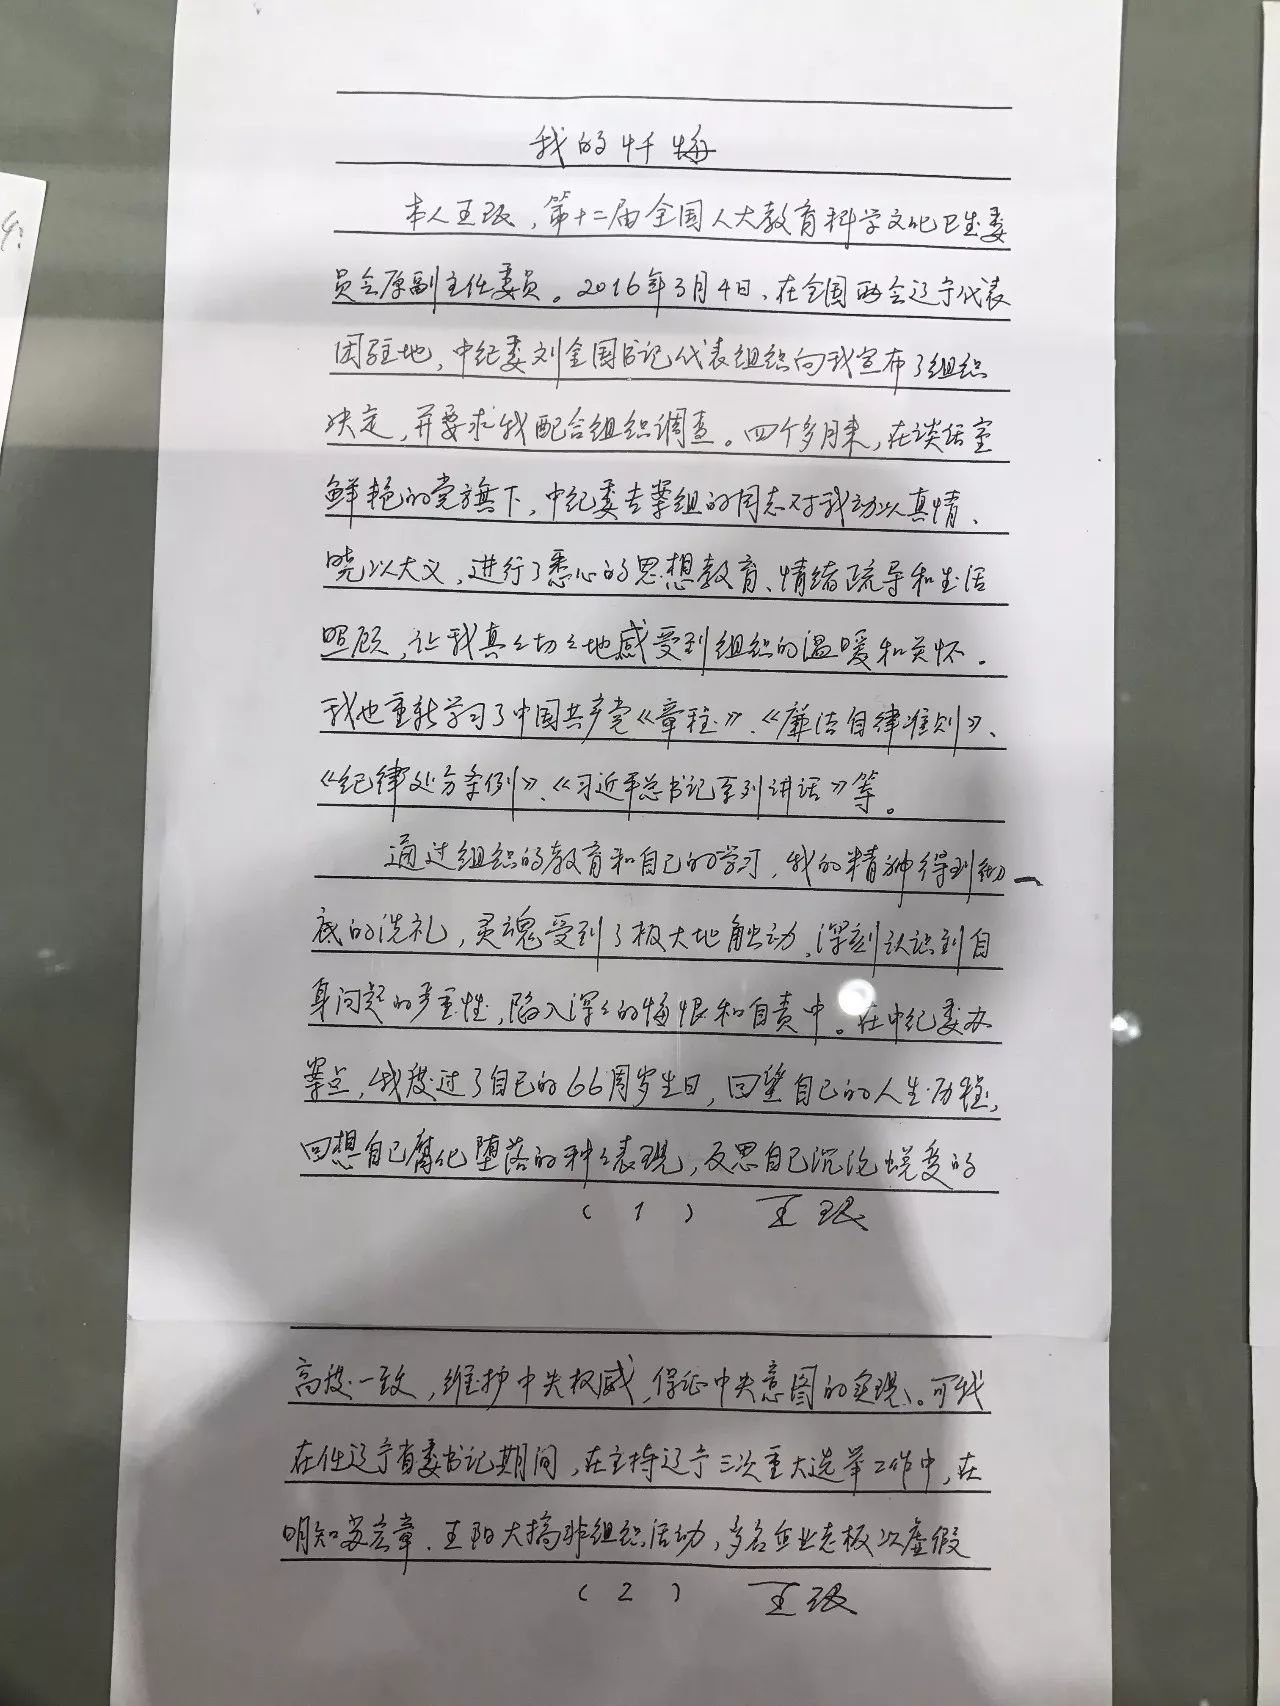 我的忏悔
本人王珉，第十二届全国人大教育科学文化卫生委
员会原副主任委员。2016年3月4日，在全国两会辽宁代表
团驻地，中纪委刘金国书记代表组织向我宣布了组织
决定，并要求我配合组织调查。四个多月来，在谈话室
鲜艳的党旗下，中纪委专案组的同志对我动以真情、
晓以大义，进行了悉心的思想教育、情绪疏导和生活
照顾，让我真真切切地感受到组织的温暖和关怀。
我也重新学习了中国共产党《章程》、《廉洁自律准则》、
《纪律处分条例》、《习近平总书记系列讲话》等。
通过组织的教育和自己的学习，我的精神得到彻
底的洗礼，灵魂受到了极大地触动，深刻认识到自
身问题的严重性，陷入深深的悔恨和自责中。在中纪委办
案点，我度过了自己的66周岁生日，回望自己的人生历程，
回想自己腐化堕落的种种表现，反思自己沉沦蜕变的
（1） 王珉
高度一致，维护中央权威，保证中央意图的实现、。可我
在任辽宁省委书记期间，在主持辽宁三次重大选举工作中，在
明知苏宏章、王阳大搞非组织活动，多名企业老板次虚假
（2） 王珉